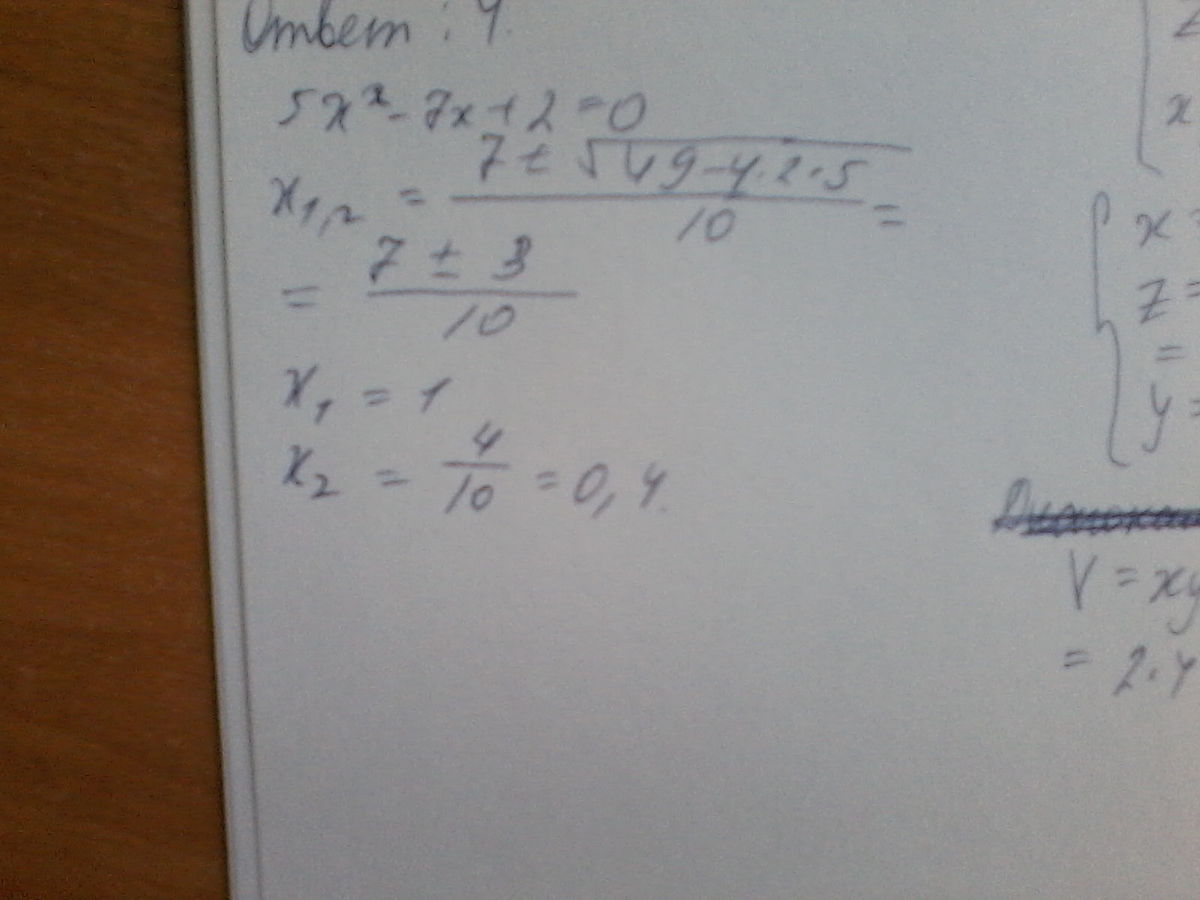 Ответ: 4.
5x² - 7x + 2 = 0
x₁,₂ = (7 ± √(49 - 4·2·5))/10 =
= (7 ± 3)/10
x₁ = 1
x₂ = 4/10 = 0,4.
z
x
{ x =
z =
=
y =
V = xy
= 2·4